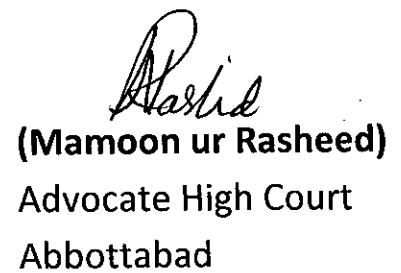 Rashid
(Mamoon ur Rasheed)
Advocate High Court
Abbottabad